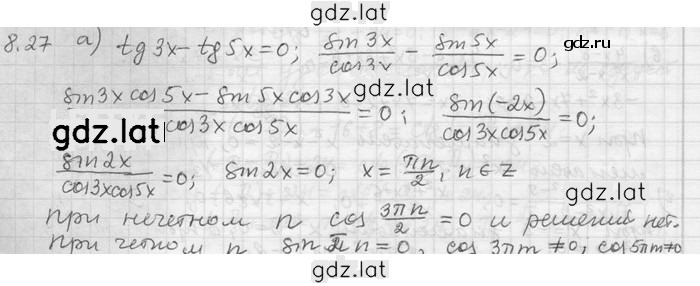 gdz.lat
8.27 а) tg 3x - tg 5x = 0; sin 3x / cos 3x - sin 5x / cos 5x = 0;
gdz.ru
gdz.lat
sin 3x cos 5x - sin 5x cos 3x / cos 3x cos 5x = 0; sin(-2x) / cos 3x cos 5x = 0;
gdz.lat
sin 2x / cos 3x cos 5x = 0; sin 2x = 0; x = πn/2, n ∈ Z
gdz.lat
при нечетном n cos 3πn/2 = 0 и решений нет.
при четном n sin πn = 0, cos 3πm ≠ 0, cos 5πm ≠ 0
gdz.lat